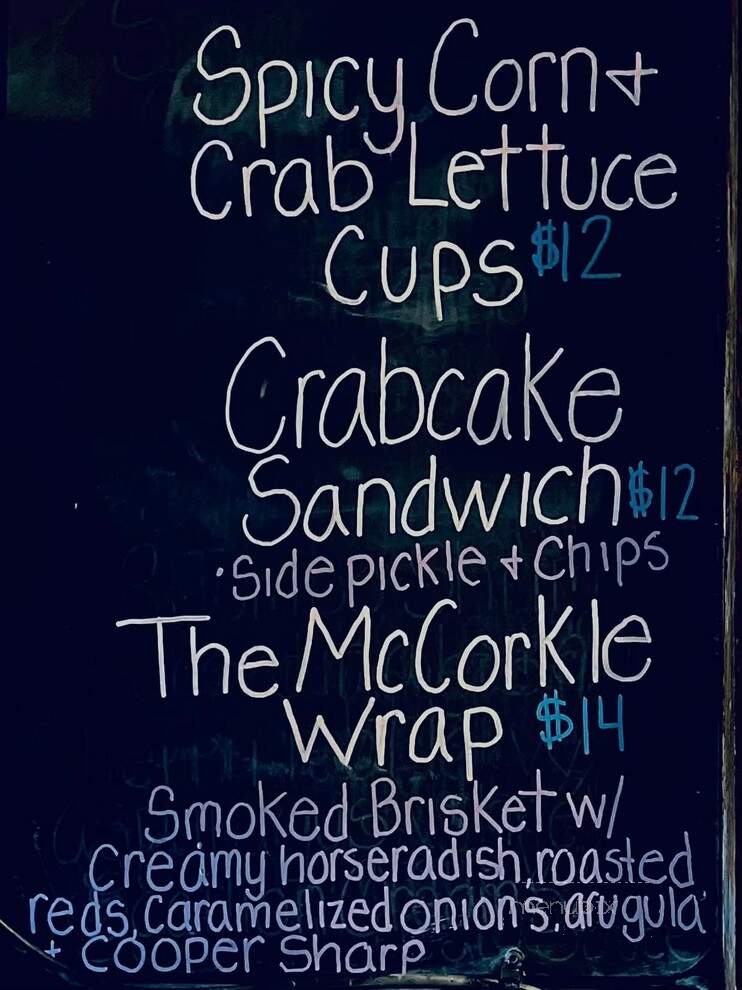 Spicy Corn +
Crab Lettuce
Cups $12
Crabcake
Sandwich $12
• Side pickle + Chips
The McCorkle
Wrap $14
Smoked Brisket w/
Creamy horseradish, roasted
reds, caramelized onions, arugula
+ COOPER Sharp